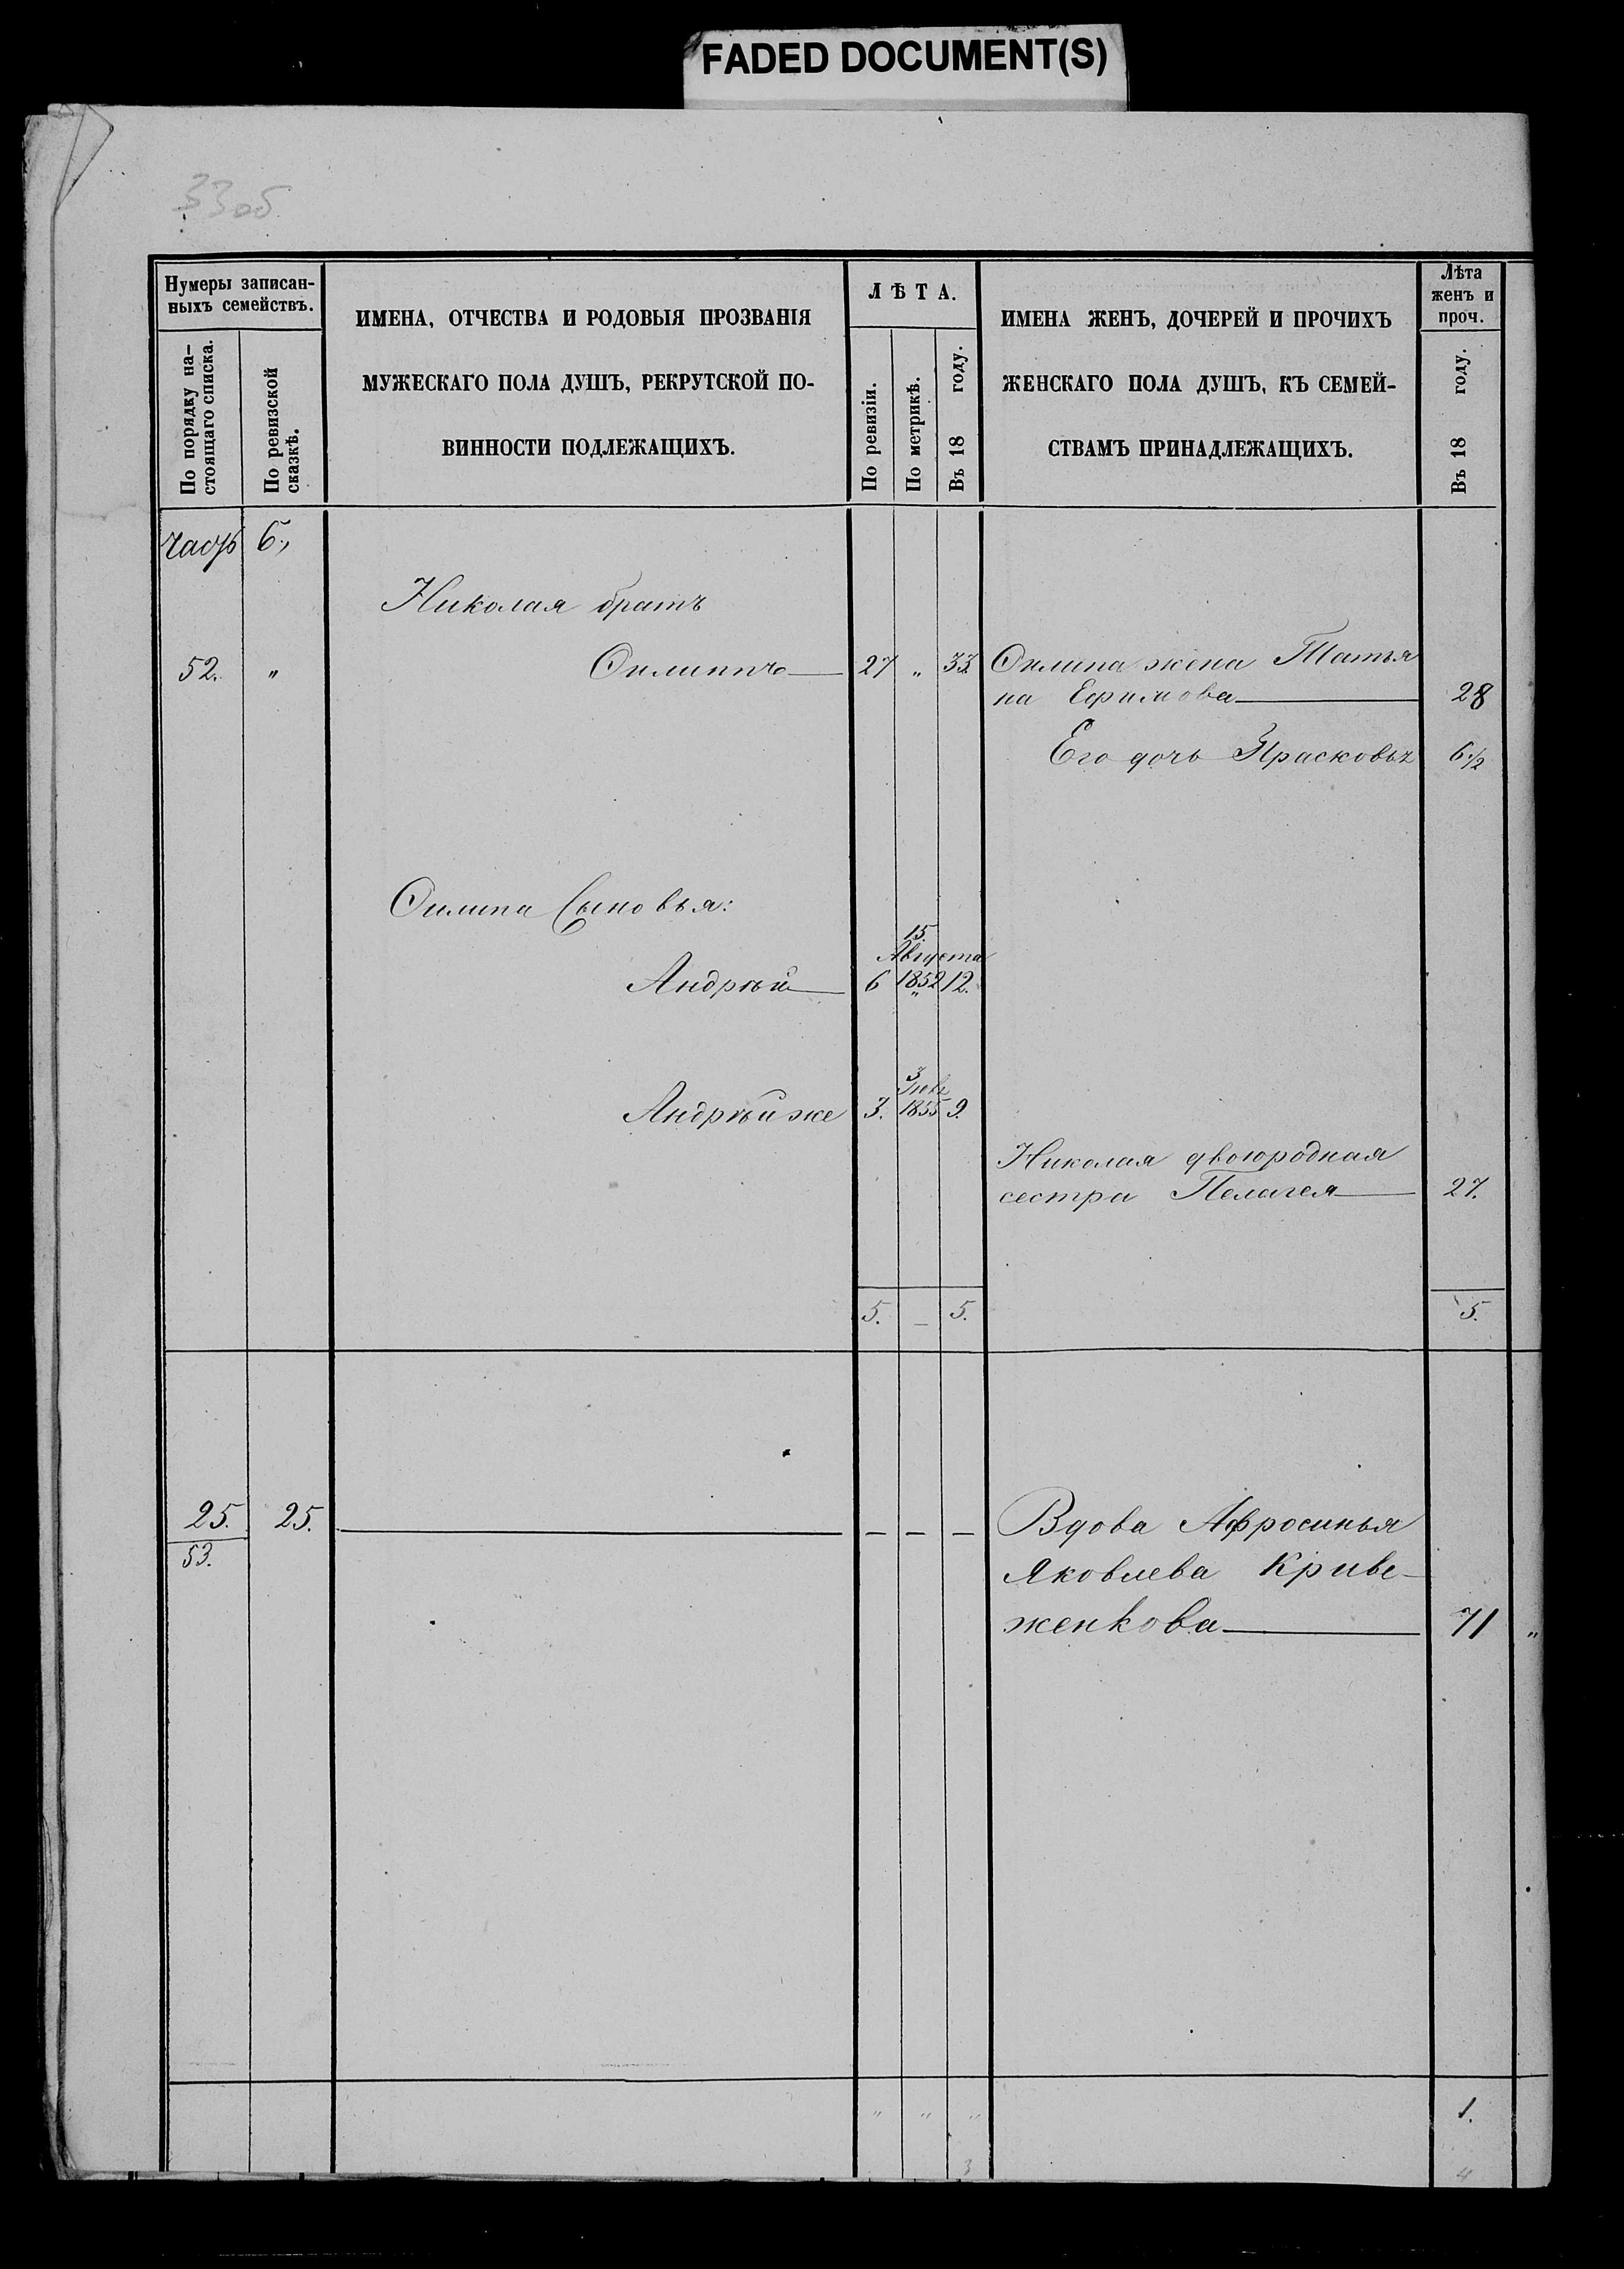 FADED DOCUMENT(S)
33об
Нумеры записан-
ныхъ семействъ.
По порядку на-
стоящаго списка.
По ревизской
сказкѣ.
ИМЕНА, ОТЧЕСТВА И РОДОВЫЯ ПРОЗВАНІЯ
МУЖЕСКАГО ПОЛА ДУШЪ, РЕКРУТСКОЙ ПО-
ВИННОСТИ ПОДЛЕЖАЩИХЪ.
ЛѢТА.
По ревизіи.
По метрикѣ.
Въ 18 году.
ИМЕНА ЖЕНЪ, ДОЧЕРЕЙ И ПРОЧИХЪ
ЖЕНСКАГО ПОЛА ДУШЪ, КЪ СЕМЕЙ-
СТВАМЪ ПРИНАДЛЕЖАЩИХЪ.
Лѣта
женъ и
проч.
Въ 18 году.
6.,
Николая братъ
52. " Филиппъ 27 " 33 Филипа жена Татья
на Ефимова 28
Его дочь Прасковья 6 1/2
Филипа Сыновья:
15
Августа
Андрѣй 6 1852 12.
"
3
Андрѣй же 3. 1855 9.
Николая двоюродная
сестра Пелагея 27.
5. — 5. 5.
25. 25. — — — Вдова Афросинья
53.
Яковлева Криве-
женкова 71 "
" " " 1.
3 4